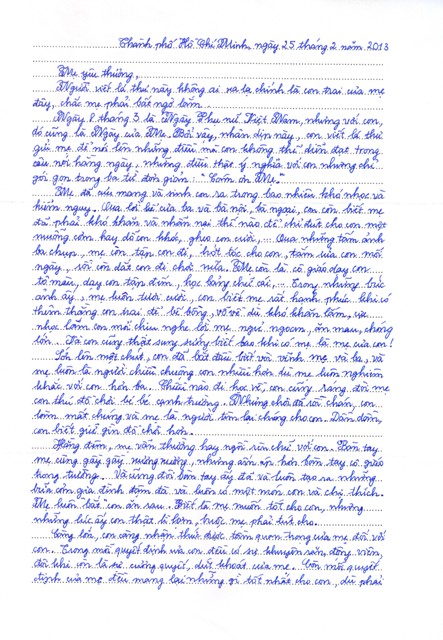 Thành phố Hồ Chí Minh, ngày 25 tháng 2 năm 2013
Mẹ yêu thương,
Người viết lá thư này không ai xa lạ chính là con trai của mẹ
đây, chắc mẹ phải bất ngờ lắm.
Ngày 8 tháng 3 là Ngày Phụ nữ Việt Nam, nhưng với con,
đó cũng là Ngày của Mẹ. Bởi vậy, nhân dịp này, con viết lá thư
gửi mẹ để nói lên những điều mà con không thể diễn đạt trong
câu nói hàng ngày, nhưng điều thật ý nghĩa với con nhưng chỉ
gói gọn trong ba từ đơn giản: "Cảm ơn Mẹ."
Mẹ đã cưu mang và sinh con ra trong bao nhiêu khó nhọc và
hiểm nguy. Qua lời kể của ba và bà nội, bà ngoại, con còn biết mẹ
đã phải khó khăn và nhẫn nại thế nào để chỉ đút cho con một
muỗng cơm hay dỗ con khóc, ghẹo con cười,... Qua những tấm ảnh
ba chụp, mẹ con tập con đi, hớt tóc cho con, tắm rửa con mỗi
ngày, rồi còn dắt con đi chơi nữa. Mẹ còn là cô giáo dạy con
tô màu, dạy con tập đếm, học bảng chữ cái,... Trong những bức
ảnh ấy, mẹ luôn tươi cười, con biết mẹ rất hạnh phúc khi có
thiên thần con trai để bế bồng, vỗ về dù khó khăn lắm, cực
nhọc lắm con mới chịu nghe lời mẹ ngủ ngoan, ăn mau, chóng
lớn. Và con cũng thật sung sướng biết bao khi có mẹ là mẹ của con!
Lớn lên một chút, con đã bắt đầu biết vòi vĩnh mẹ và ba, và
mẹ luôn là người chiều chuộng con nhiều hơn dù mẹ luôn nghiêm
khắc với con hơn ba. Chiều nào đi học về, con cũng ráng đòi mẹ
con thú đồ chơi bé bé cạnh trường. Những chơi đã rồi chán, con
làm mất chúng và mẹ lại người tìm lại chúng cho con. Dần dần,
con biết giữ gìn đồ chơi hơn.
Hằng đêm, mẹ vẫn thường hay ngồi rèn chữ với con. Bàn tay
mẹ cũng gầy gầy xương xương, nhưng ấm áp hơn bàn tay cô giáo
trong trường. Và cũng đôi bàn tay ấy đã và luôn tạo ra những
bữa cơm gia đình đầm ấm và luôn có một món con và chị thích.
Mẹ luôn bắt con ăn rau. Biết là mẹ muốn tốt cho con, nhưng
những lúc ấy con thật lì lợm, buộc mẹ phải bất cho.
Càng lớn, con càng nhận thức được tầm quan trọng của mẹ đối với
con. Trong mỗi quyết định của con đều có sự khuyên răn, động viên,
đôi khi còn là sự cương quyết, dứt khoát của mẹ. Còn mỗi quyết
định của mẹ đều mang lại những gì tốt nhất cho con, dù phải